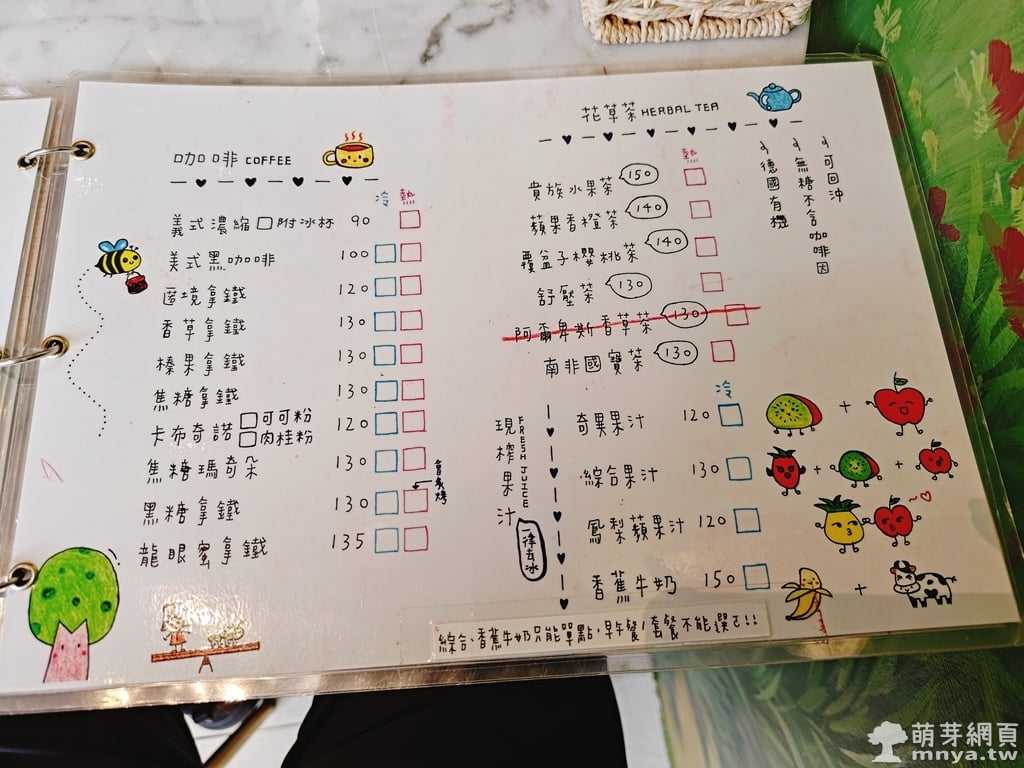 咖啡 COFFEE
冷 熱
義式濃縮 附冰杯 90
美式黑咖啡 100
固境拿鐵 120
香草拿鐵 130
榛果拿鐵 130
焦糖拿鐵 130
卡布奇諾 可可粉 肉桂粉 120
焦糖瑪奇朵 130
黑糖拿鐵 130
會炙烤
龍眼蜜拿鐵 135
花草茶 HERBAL TEA
熱
貴族水果茶 150
蘋果香橙茶 140
覆盆子櫻桃茶 140
舒壓茶 130
阿爾卑斯香草茶 130
南非國寶茶 130
可回沖
無糖不含咖啡因
德國有機
現榨果汁
FRESH JUICE
一律去冰
冷
奇異果汁 120
綜合果汁 130
鳳梨蘋果汁 120
香蕉牛奶 150
綜合、香蕉牛奶只能單點,早午餐/套餐不能選ㄛ!!
萌芽網頁
mnya.tw